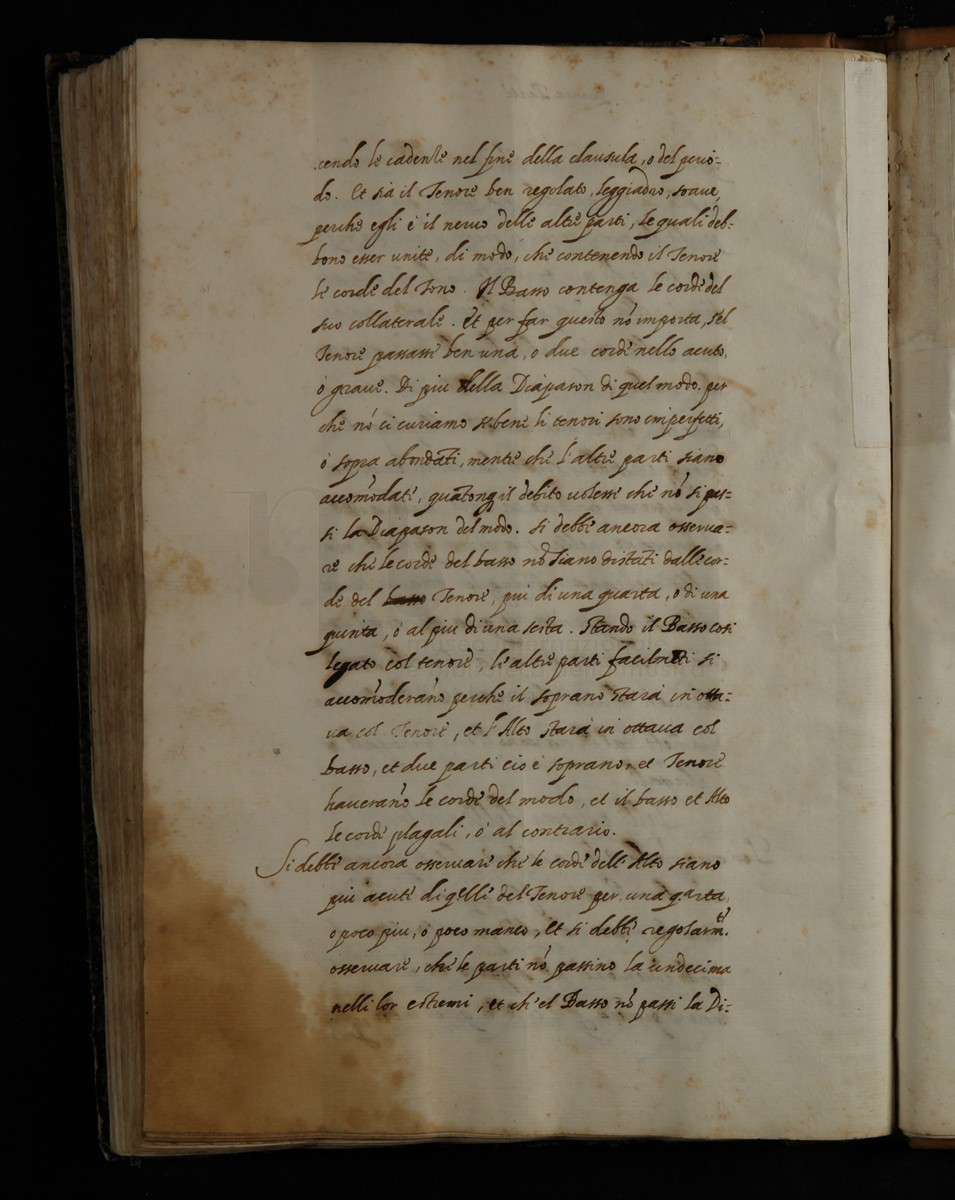 cendo le cadenze nel fine della clausula, o del perio-
do. Et sia il Tenore ben regolato, leggiadro, soave,
perche egli è il neruo delle altre parti, le quali deb-
bono esser unite, di modo, che contenendo il Tenore
le corde del Tono. Il Basso contenga le corde del
suo collaterale. Et per far questo nõ importa, s'el
Tenore passasse ben una, o due corde nello acuto,
o graue. Di piu della Diapason di quel modo. per
che nõ ci curiamo se bene li tenori sono imperfetti,
ó sopra abondãti, mentre che l'altre parti siano
accõmodate, quãtonq; il debito uolesse che nõ si pas-
si la Diapason del modo. Si debbe ancora osserua-
re che le corde del basso nõ siano distãti dalle cor-
de del basso Tenore, piu di una quarta, o di una
quinta, ó al piu di una sesta. Stando il Basso cosi
legato col tenore, le altre parti facilmẽte si
accõmoderãno perche il soprano starà in otta-
ua col Tenore, et l'Alto starà in ottaua col
basso, et due parti cio è soprano, et Tenore
hauerãno le corde del modo, et il basso et Alto
le corde plagali, ó al contrario.
Si debbe ancora osseruare che le corde dell'Alto siano
piu acute di q̃lle del Tenore per una q.arta,
o poco piu, o poco manco, Et si debbe regolarm.te
osseruare, che le parti nõ passino la undecima
nelli lor estremi, et ch'el Basso nõ passi la Di-